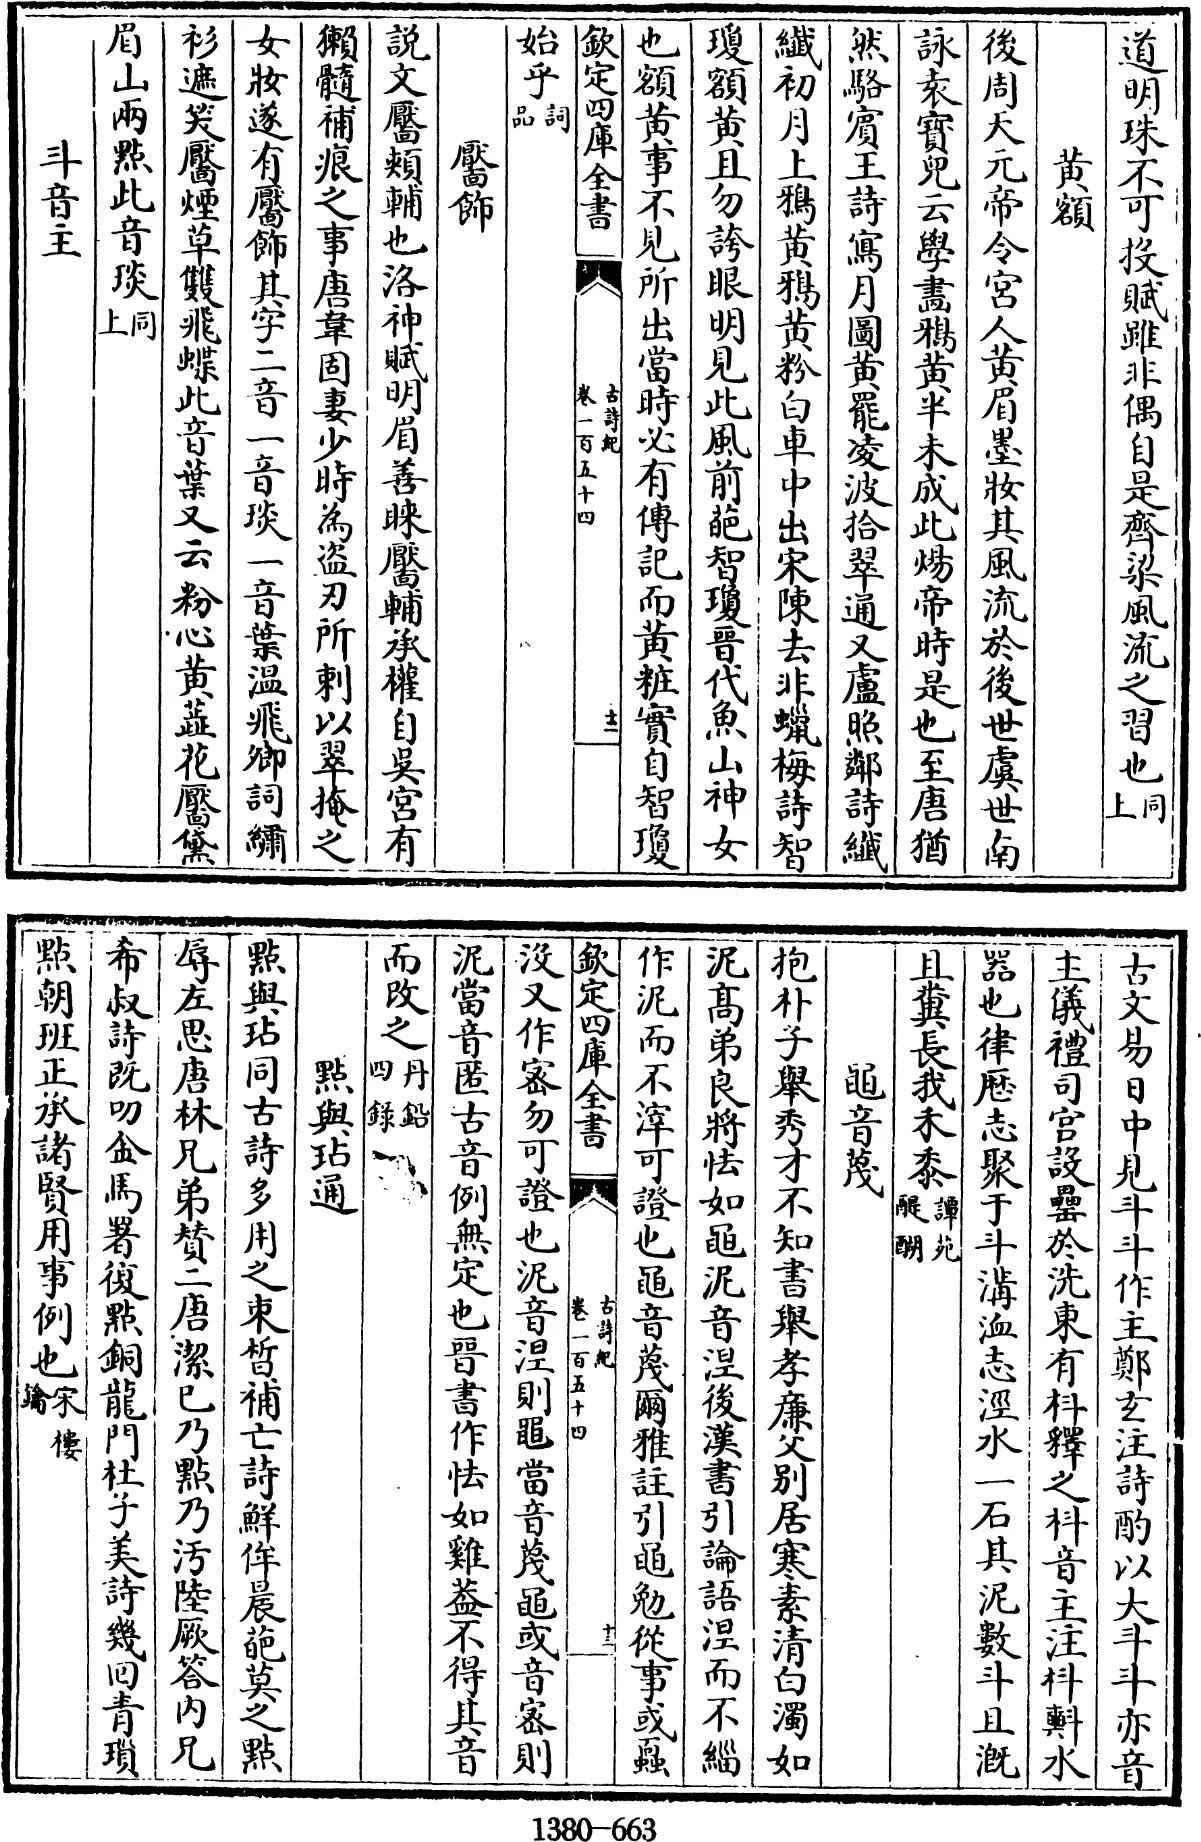 道明珠不可投賦雖非偶自是齊梁風流之習也同上
黄額
後周天元帝令宮人黄眉墨妝其風流於後世虞世南
詠袁寳兒云學畫鴉黄半未成此煬帝時是也至唐猶
然駱賓王詩寫月圖黄罷凌波拾翠通又盧照鄰詩纎
纎初月上鴉黄鴉黄粉白車中出宋陳去非蠟梅詩智
瓊額黄且勿誇眼明見此風前葩智瓊晉代魚山神女
也額黄事不見所出當時必有傳記而黄粧實自智瓊
欽定四庫全書
古詩紀
卷一百五十四
十一
始乎詞品
靨飾
説文靨頰輔也洛神賦明眉善睞靨輔承權自吳宮有
獺髓補痕之事唐韋固妻少時為盜刃所刺以翠掩之
女妝遂有靨飾其字二音一音琰一音葉温飛卿詞繡
衫遮笑靨煙草雙飛蝶此音葉又云粉心黄蕋花靨黛
眉山兩點此音琰同上
斗音主
古文易日中見斗斗作主鄭玄注詩酌以大斗斗亦音
主儀禮司宮設罍於洗東有枓釋之枓音主注枓㪺水
器也律歴志聚于斗溝洫志涇水一石其泥數斗且溉
且糞長我禾黍譚苑醍醐
黽音蔑
抱朴子舉秀才不知書舉孝廉父别居寒素清白濁如
泥髙弟良將怯如黽泥音涅後漢書引論語涅而不緇
作泥而不滓可證也黽音蔑爾雅註引黽勉從事或蠠
沒又作宻勿可證也泥音涅則黽當音蔑黽或音宻則
泥當音匿古音例無定也晉書作怯如雞葢不得其音
而改之丹鉛四録
欽定四庫全書
古詩紀
卷一百五十四
十二
點與玷通
點與玷同古詩多用之束晳補亡詩鮮侔晨葩莫之點
辱左思唐林兄弟賛二唐潔已乃點乃汚陸厥答内兄
希叔詩既叨金馬署復點銅龍門杜子美詩幾回青瑣
點朝班正承諸賢用事例也宋樓鑰
1380-663